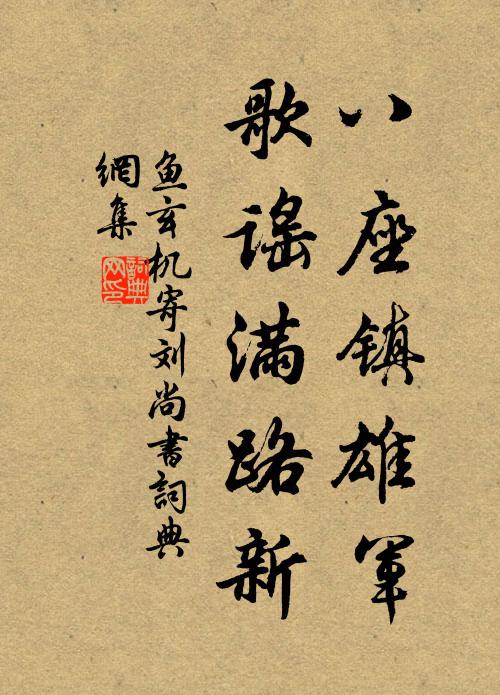 八座镇雄军
歌谣满路新
鱼玄机寄刘尚书詞典
網集
詞典
网印